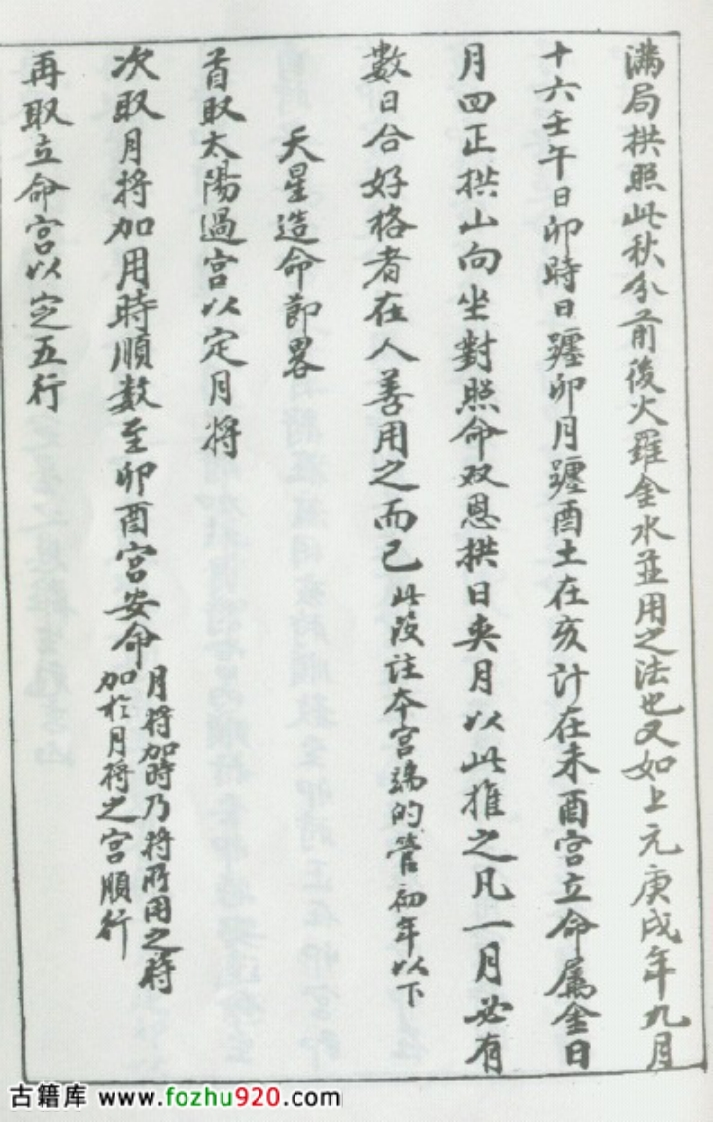 滿局拱照此秋分前後火羅金水並用之法也又如上元庚戌年九月
十六壬午日卯時日躔卯月躔酉土在亥計在未酉宮立命屬金日
月四正拱山向坐對照命双恩拱日夾月以此推之凡一月必有
數日合好格者在人善用之而已此段註本宮端的管初年以下
天星造命節畧
首取太陽過宮以定月将
次取月将加用時順数至卯酉宮安命月将加時乃将所用之時
加於月将之宮順行
再取立命宮以定五行
古籍库 www.fozhu920.com